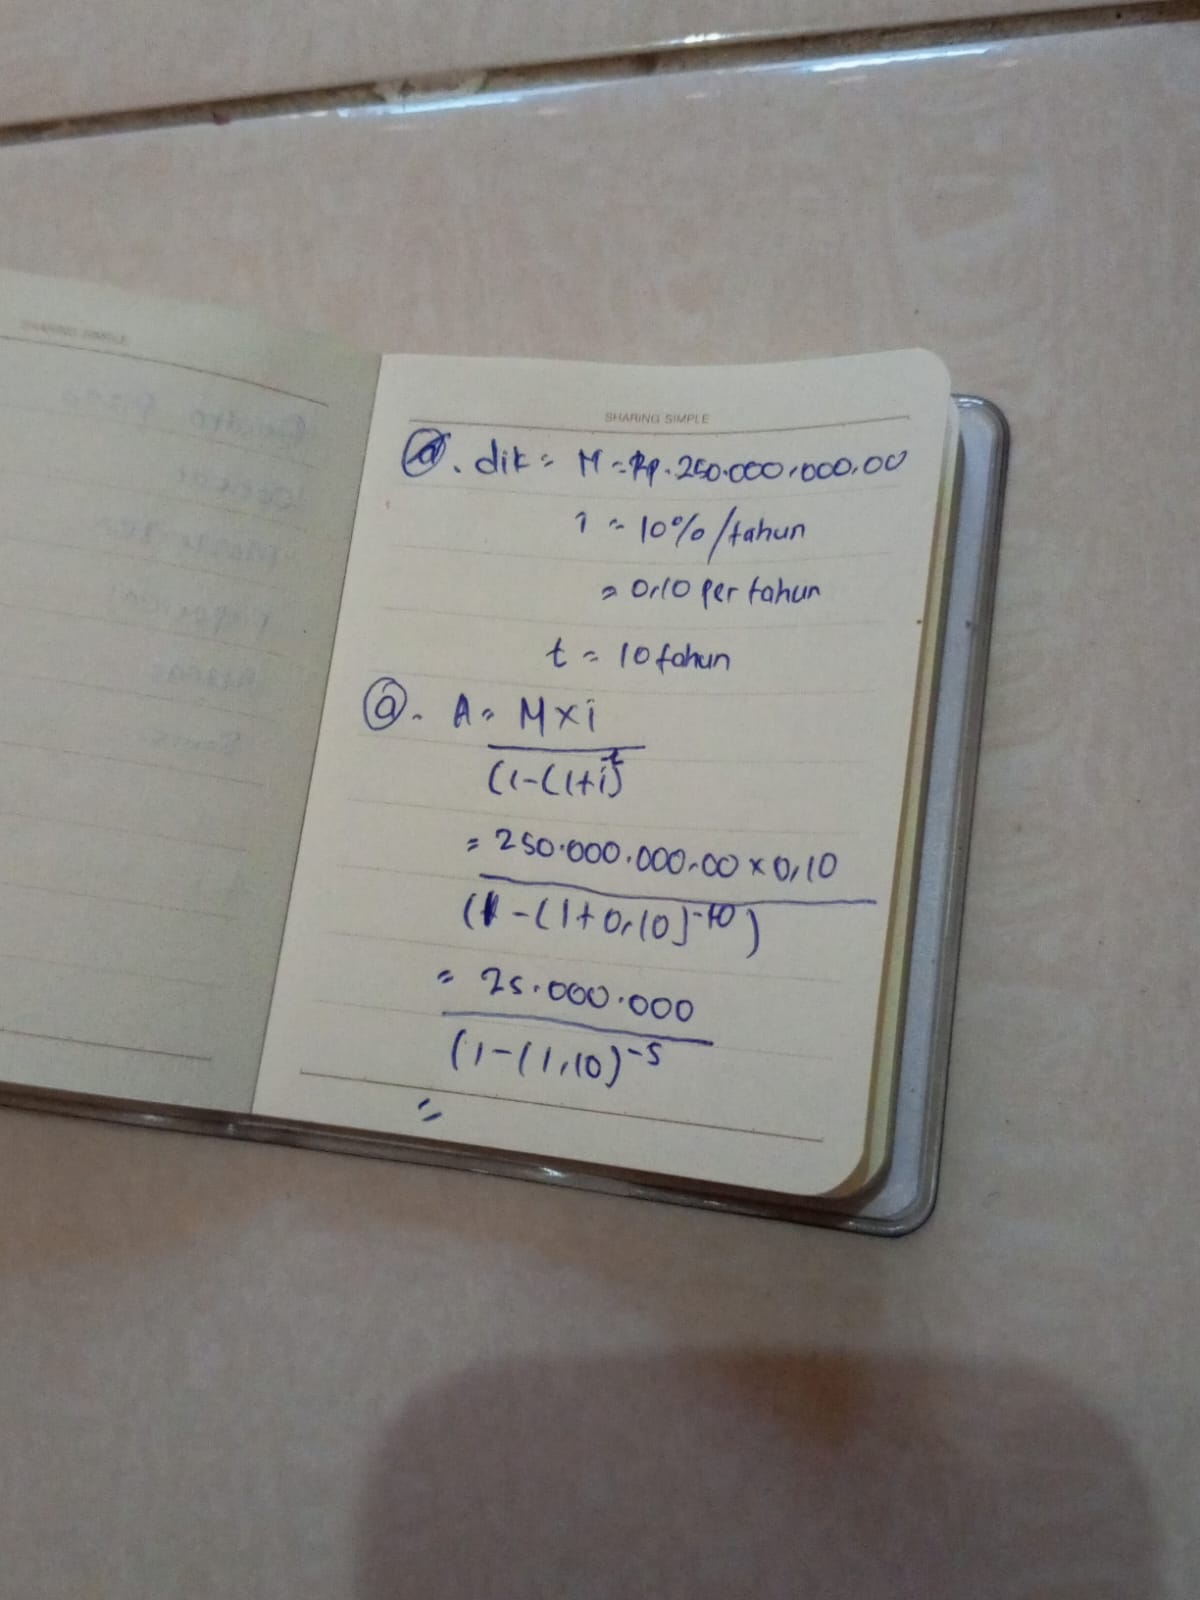 SHARING SIMPLE
SHARING SIMPLE
a. dik = M = Rp. 250.000.000,00
i = 10% / tahun
= 0,10 per tahun
t = 10 tahun
a. A = M × i
(1-(1+i)-t
= 250.000.000,00 × 0,10
(1-(1+0,10)-10)
= 25.000.000
(1-(1,10)-5
=